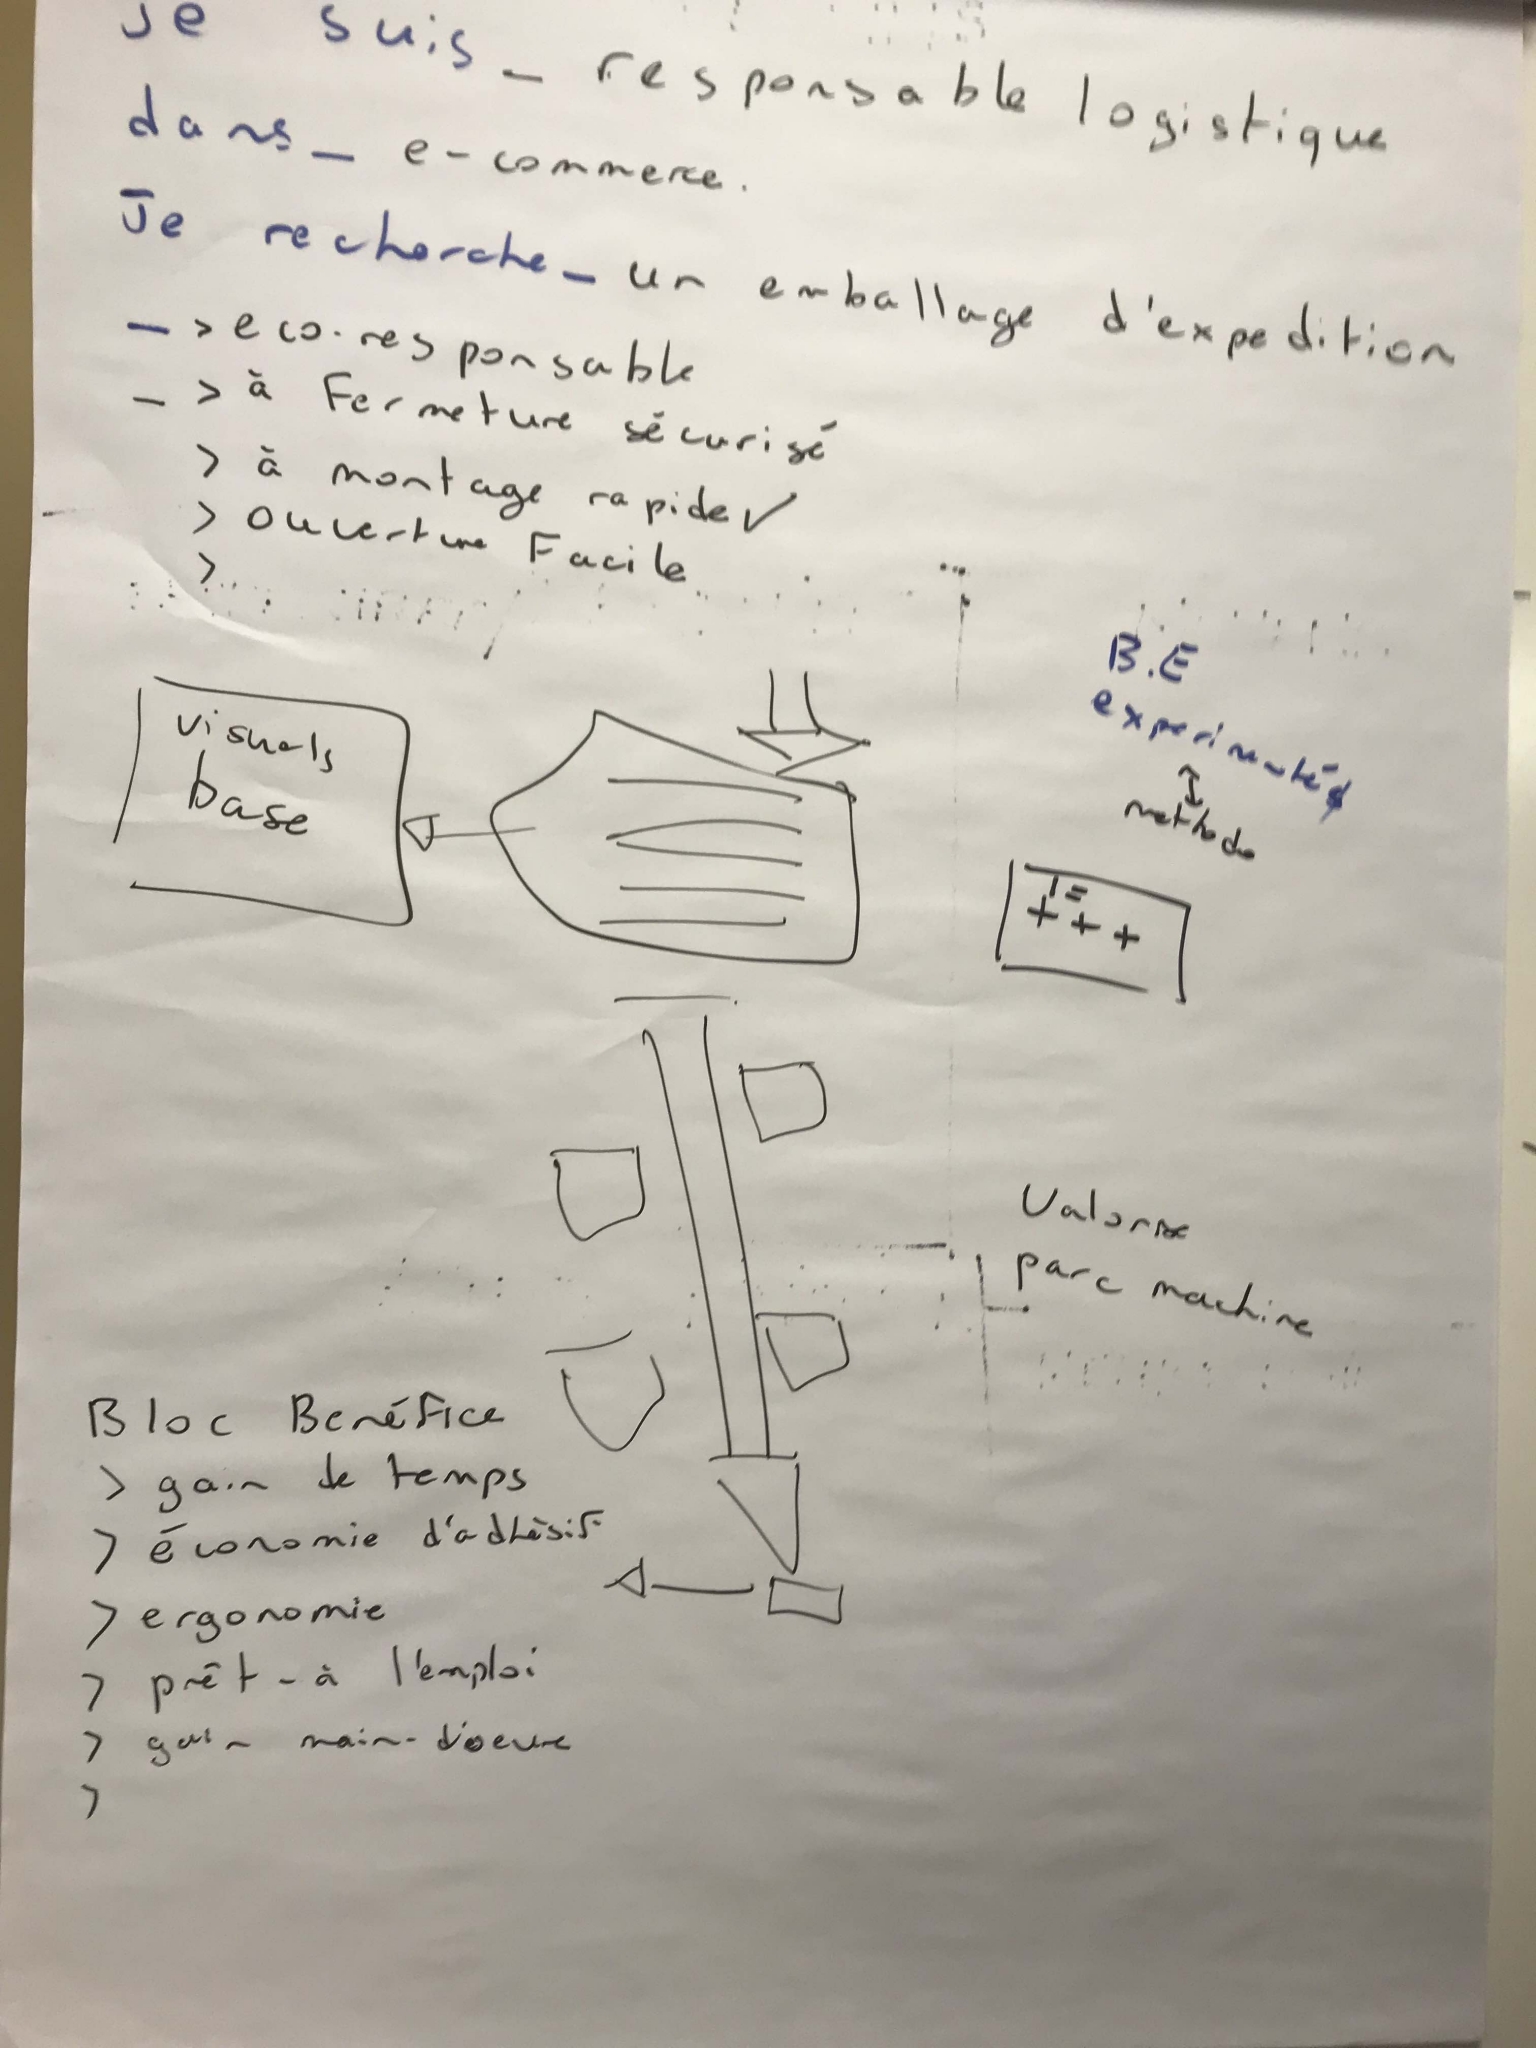 Je suis_ responsable logistique
dans_ e-commerce.
Je recherche_ un emballage d'expedition
_ > eco-responsable
_ > à Fermeture sécurisé
> à montage rapide ✓
> Ouverture Facile
>
B.E
experimentés
methode
visuels
base
+ + +
Valorise
parc machine
Bloc Bénéfice
> gain de temps
> économie d'adhésif
> ergonomie
> prêt-à l'emploi
> gain main-d'oeuvre
>